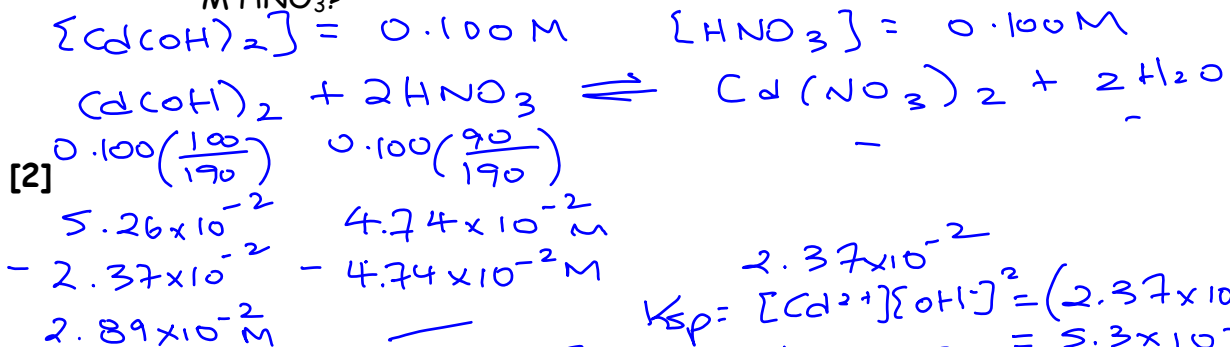 M HNO3?
[Cd(OH)2] = 0.100 M [HNO3] = 0.100 M
Cd(OH)2 + 2HNO3 ⇌ Cd(NO3)2 + 2H2O
0.100(100/190) 0.100(90/190) - -
[2]
5.26x10^-2 4.74x10^-2 M
- 2.37x10^-2 - 4.74x10^-2 M 2.37x10^-2
2.89x10^-2 M — Ksp = [Cd2+][OH-]^2 = (2.37x10
= 5.3x10